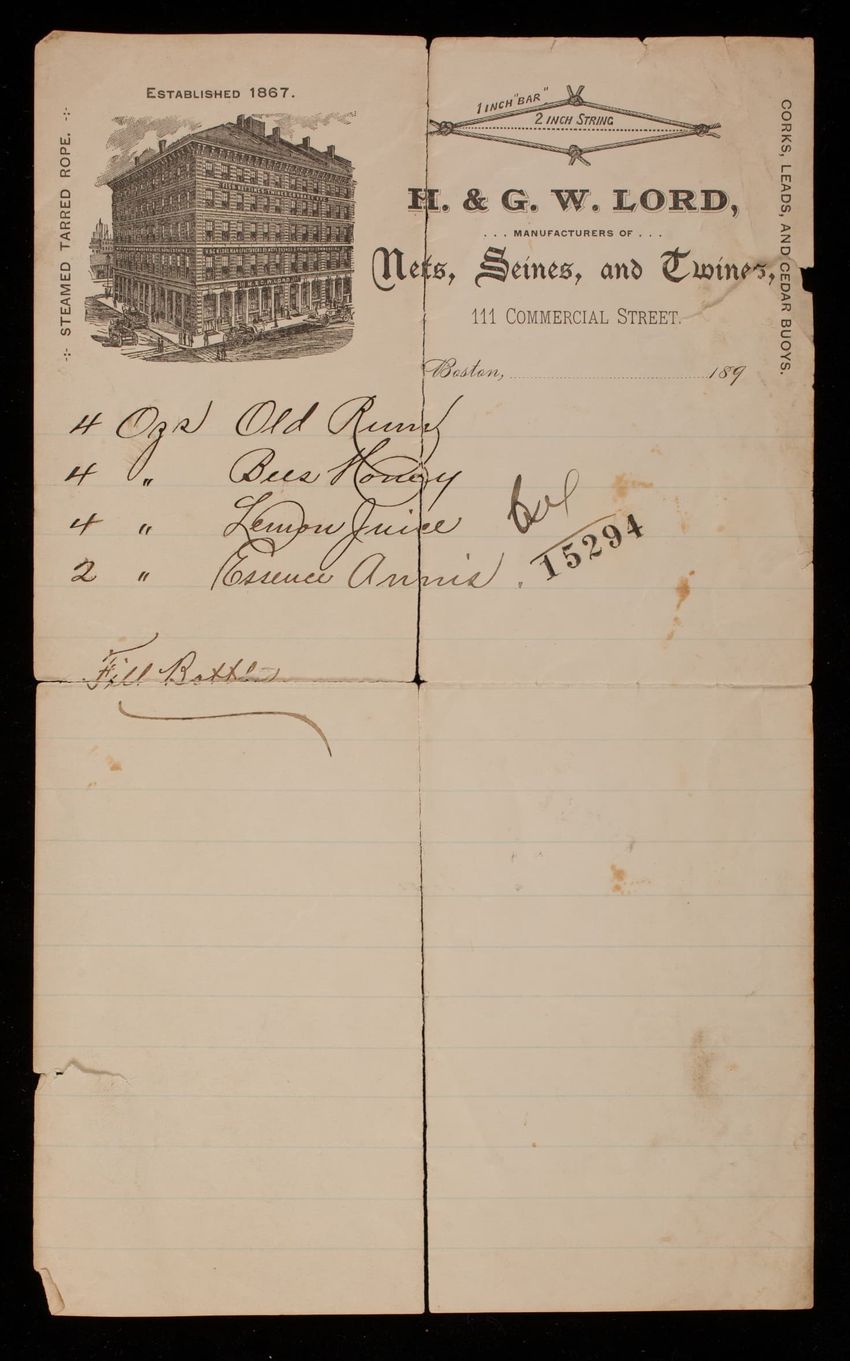 ESTABLISHED 1867.
STEAMED TARRED ROPE.
1 INCH "BAR"
2 INCH STRING
H. & G. W. LORD,
... MANUFACTURERS OF ...
Nets, Seines, and Twines,
111 COMMERCIAL STREET.
CORKS, LEADS, AND CEDAR BUOYS.
Boston, 189
4 Ozs Old Rum
4 " Bees Honey
4 " Lemon Juice
2 " Essence Annis.
15294
Fill Bottle